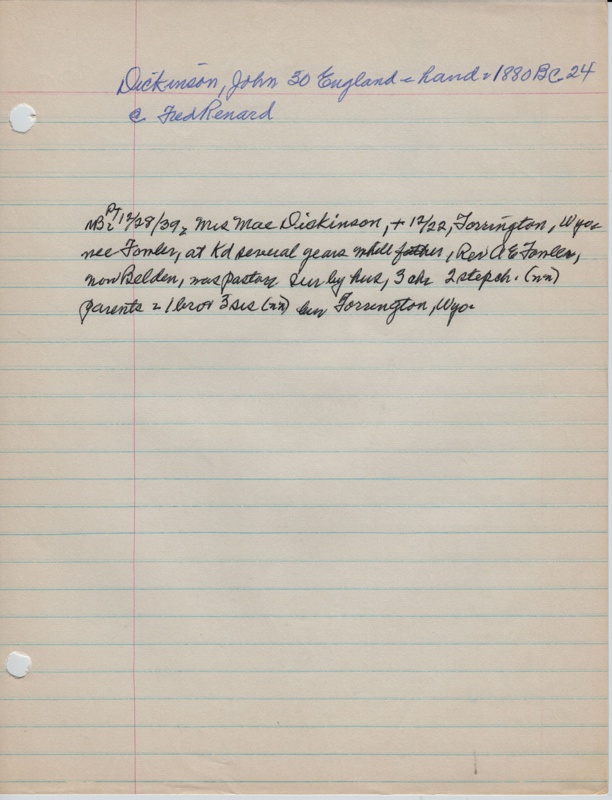 Dickinson, John 30 England = hand = 1880 BC 24
c Fred Renard
NBr Pt 12/28/39 = Mrs Mae Dickinson, + 12/22, Torrington, Wyo =
nee Fowler, at Kd several years while father, Rev A E Fowler,
now Belden, was pastor = sur by hus, 3 chr 2 step ch. (nn)
parents = 1 bro + 3 sis (nn) bur Torrington, Wyo =